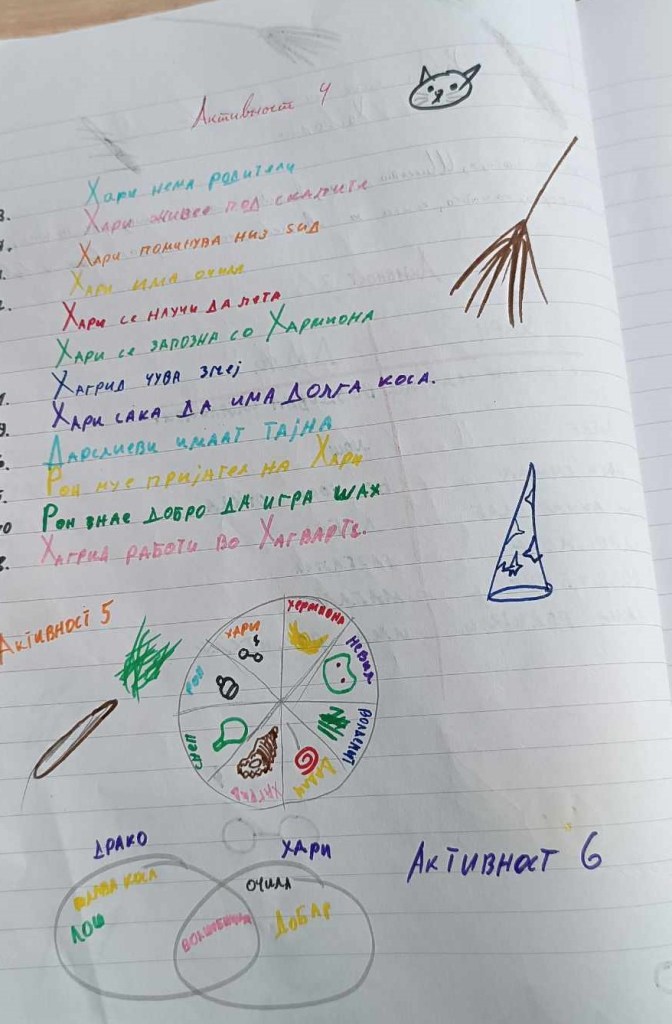 Активност 4
Хари нема родители
Хари живее под скалите
Хари поминува низ ѕид
Хари има очила
Хари се научи да лета
Хари се запозна со Хармиона
Хагрид чува змеј
Хари сака да има долга коса.
Дарслиеви имаат тајна
Рон му е пријател на Хари
Рон знае добро да игра шах
Хагрид работи во Хагвартс.
Активност 5
Хари
Хермиона
Невил
Дадли
Хагрид
Снеп
Рон
Драко
Хари
Активност 6
плава коса
очила
лош
волшебници
добар